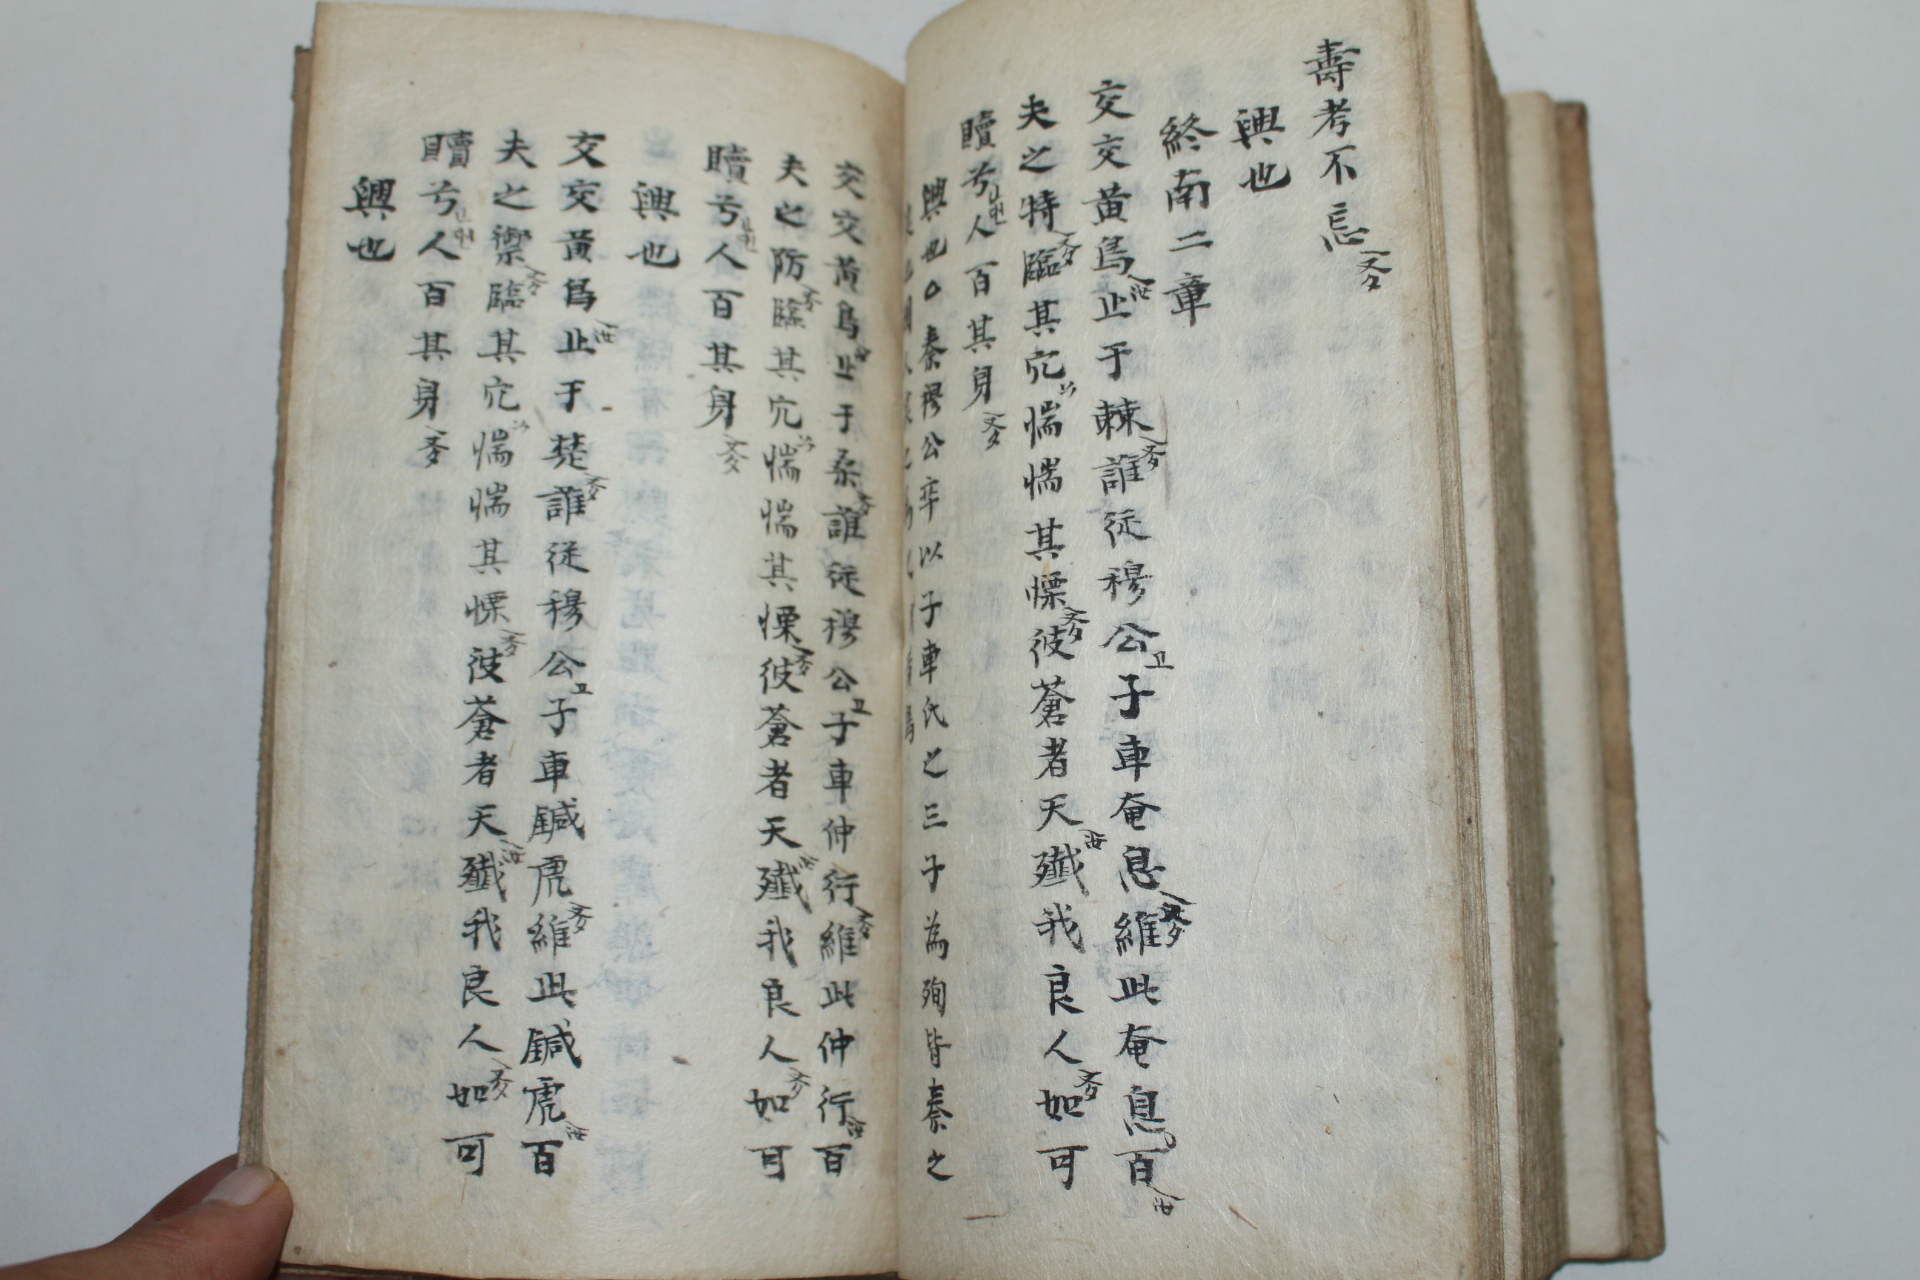 壽考不忘
興也
終南二章
交交黃鳥止于棘誰從穆公고子車奄息維此奄息百
夫之特臨其穴惴惴其慄彼蒼者天殲我良人如可
贖兮人百其身
興也○秦穆公卒以子車氏之三子為殉皆秦之
交交黃鳥止于桑誰從穆公고子車仲行維此仲行百
夫之防臨其穴惴惴其慄彼蒼者天殲我良人如可
贖兮人百其身
興也
交交黃鳥止于楚誰從穆公고子車鍼虎維此鍼虎百
夫之禦臨其穴惴惴其慄彼蒼者天殲我良人如可
贖兮人百其身
興也